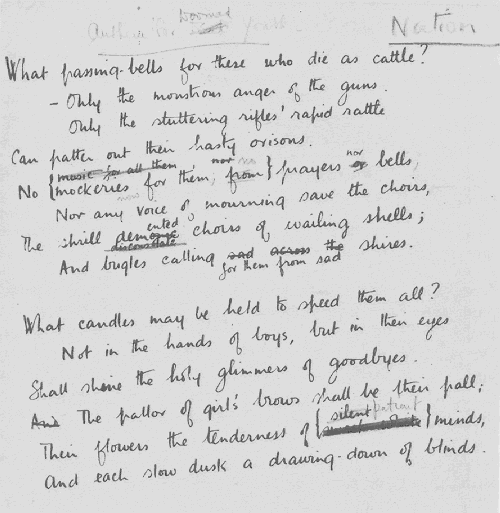 Anthem for doomed Youth Nation
What passing-bells for these who die as cattle?
– Only the monstrous anger of the guns.
Only the stuttering rifles' rapid rattle
Can patter out their hasty orisons.
music for all them nor no
No {mockeries for them; from} prayers nor or bells,
Nor any voice of mourning save the choirs,
The shrill demented disconsolate choirs of wailing shells;
And bugles calling sad across the shires.
for them from sad
What candles may be held to speed them all?
Not in the hands of boys, but in their eyes
Shall shine the holy glimmers of goodbyes.
And The pallor of girl's brows shall be their pall;
silent patient
Their flowers the tenderness of { } minds,
And each slow dusk a drawing-down of blinds.